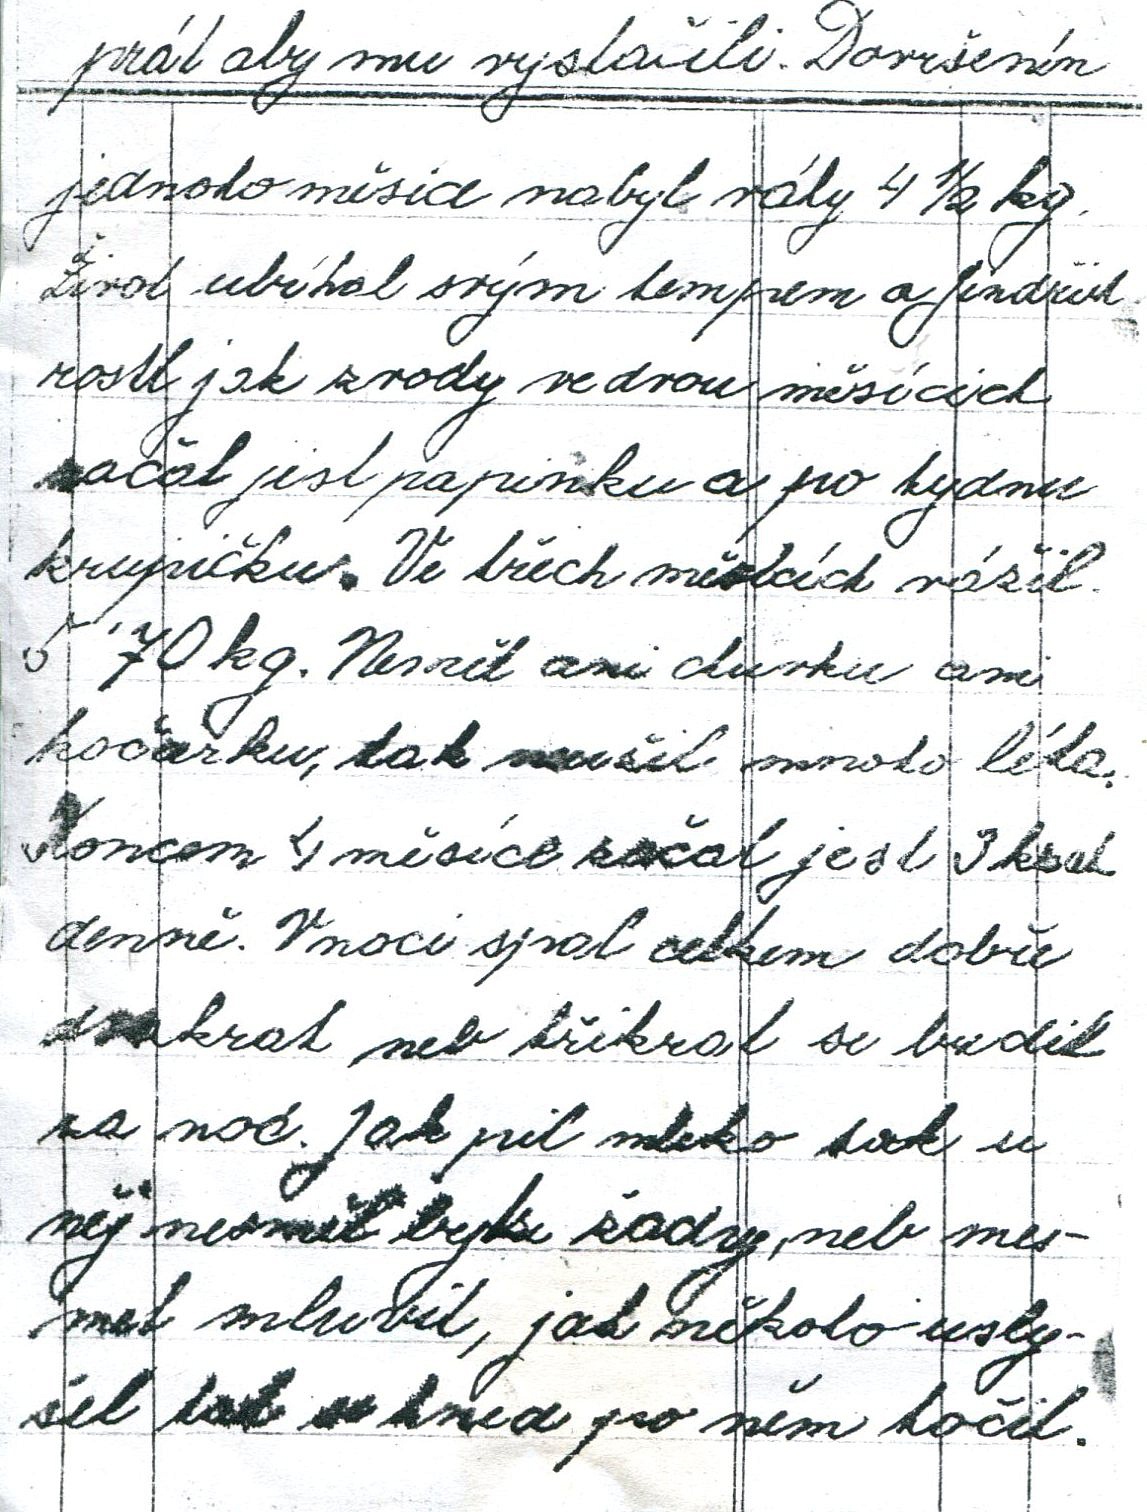 přál aby mu vystačili. Dovršením
jednoho měsíce nabyl váhy 4 1/2 kg.
Život ubíhal svým tempem a Jindřich
rostl jak z vody ve dvou měsících
začal jist papinku a po tydnu
krupičku. Ve třech měsících vážil
5 70 kg. Neměl ani dudku ani
kočárku, tak mnoho léta.
Koncem 4 měsíce začal jest 3 krat
denně. V noci spal celkem dobře
dvakrat neb třikrat se budil
za noc. Jak pil mleko tak u
něj nesměl byt žadny, neb nes-
měl mluvit, jak někoho usly-
šel tak se hned po něm točil.